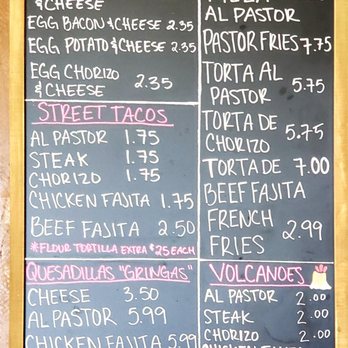 & CHEESE
EGG BACON & CHEESE 2.35
EGG POTATO & CHEESE 2.35
EGG CHORIZO
& CHEESE 2.35
STREET TACOS
AL PASTOR 1.75
STEAK 1.75
CHORIZO 1.75
CHICKEN FAJITA 1.75
BEEF FAJITA 2.50
*FLOUR TORTILLA EXTRA $.25 EACH
QUESADILLAS "GRINGAS"
CHEESE 3.50
AL PASTOR 5.99
CHICKEN FAJITA 5.99
AL PASTOR
PASTOR FRIES 7.75
TORTA AL
PASTOR 5.75
TORTA DE
CHORIZO 5.75
TORTA DE 7.00
BEEF FAJITA
FRENCH
FRIES 2.99
VOLCANOES
AL PASTOR 2.00
STEAK 2.00
CHORIZO 2.00